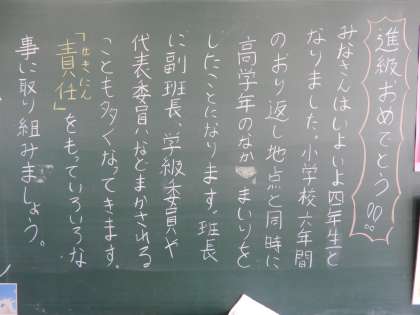 進級おめでとう!!
みなさんはいよいよ四年生と
なりました。小学校六年間
のおり返し地点と同時に
高学年のなかまいりを
したことになります。班長
に副班長、学級委員や
代表委員などまかされる
ことも多くなってきます。
「責任」をもっていろいろな
せきにん
事に取り組みましょう。